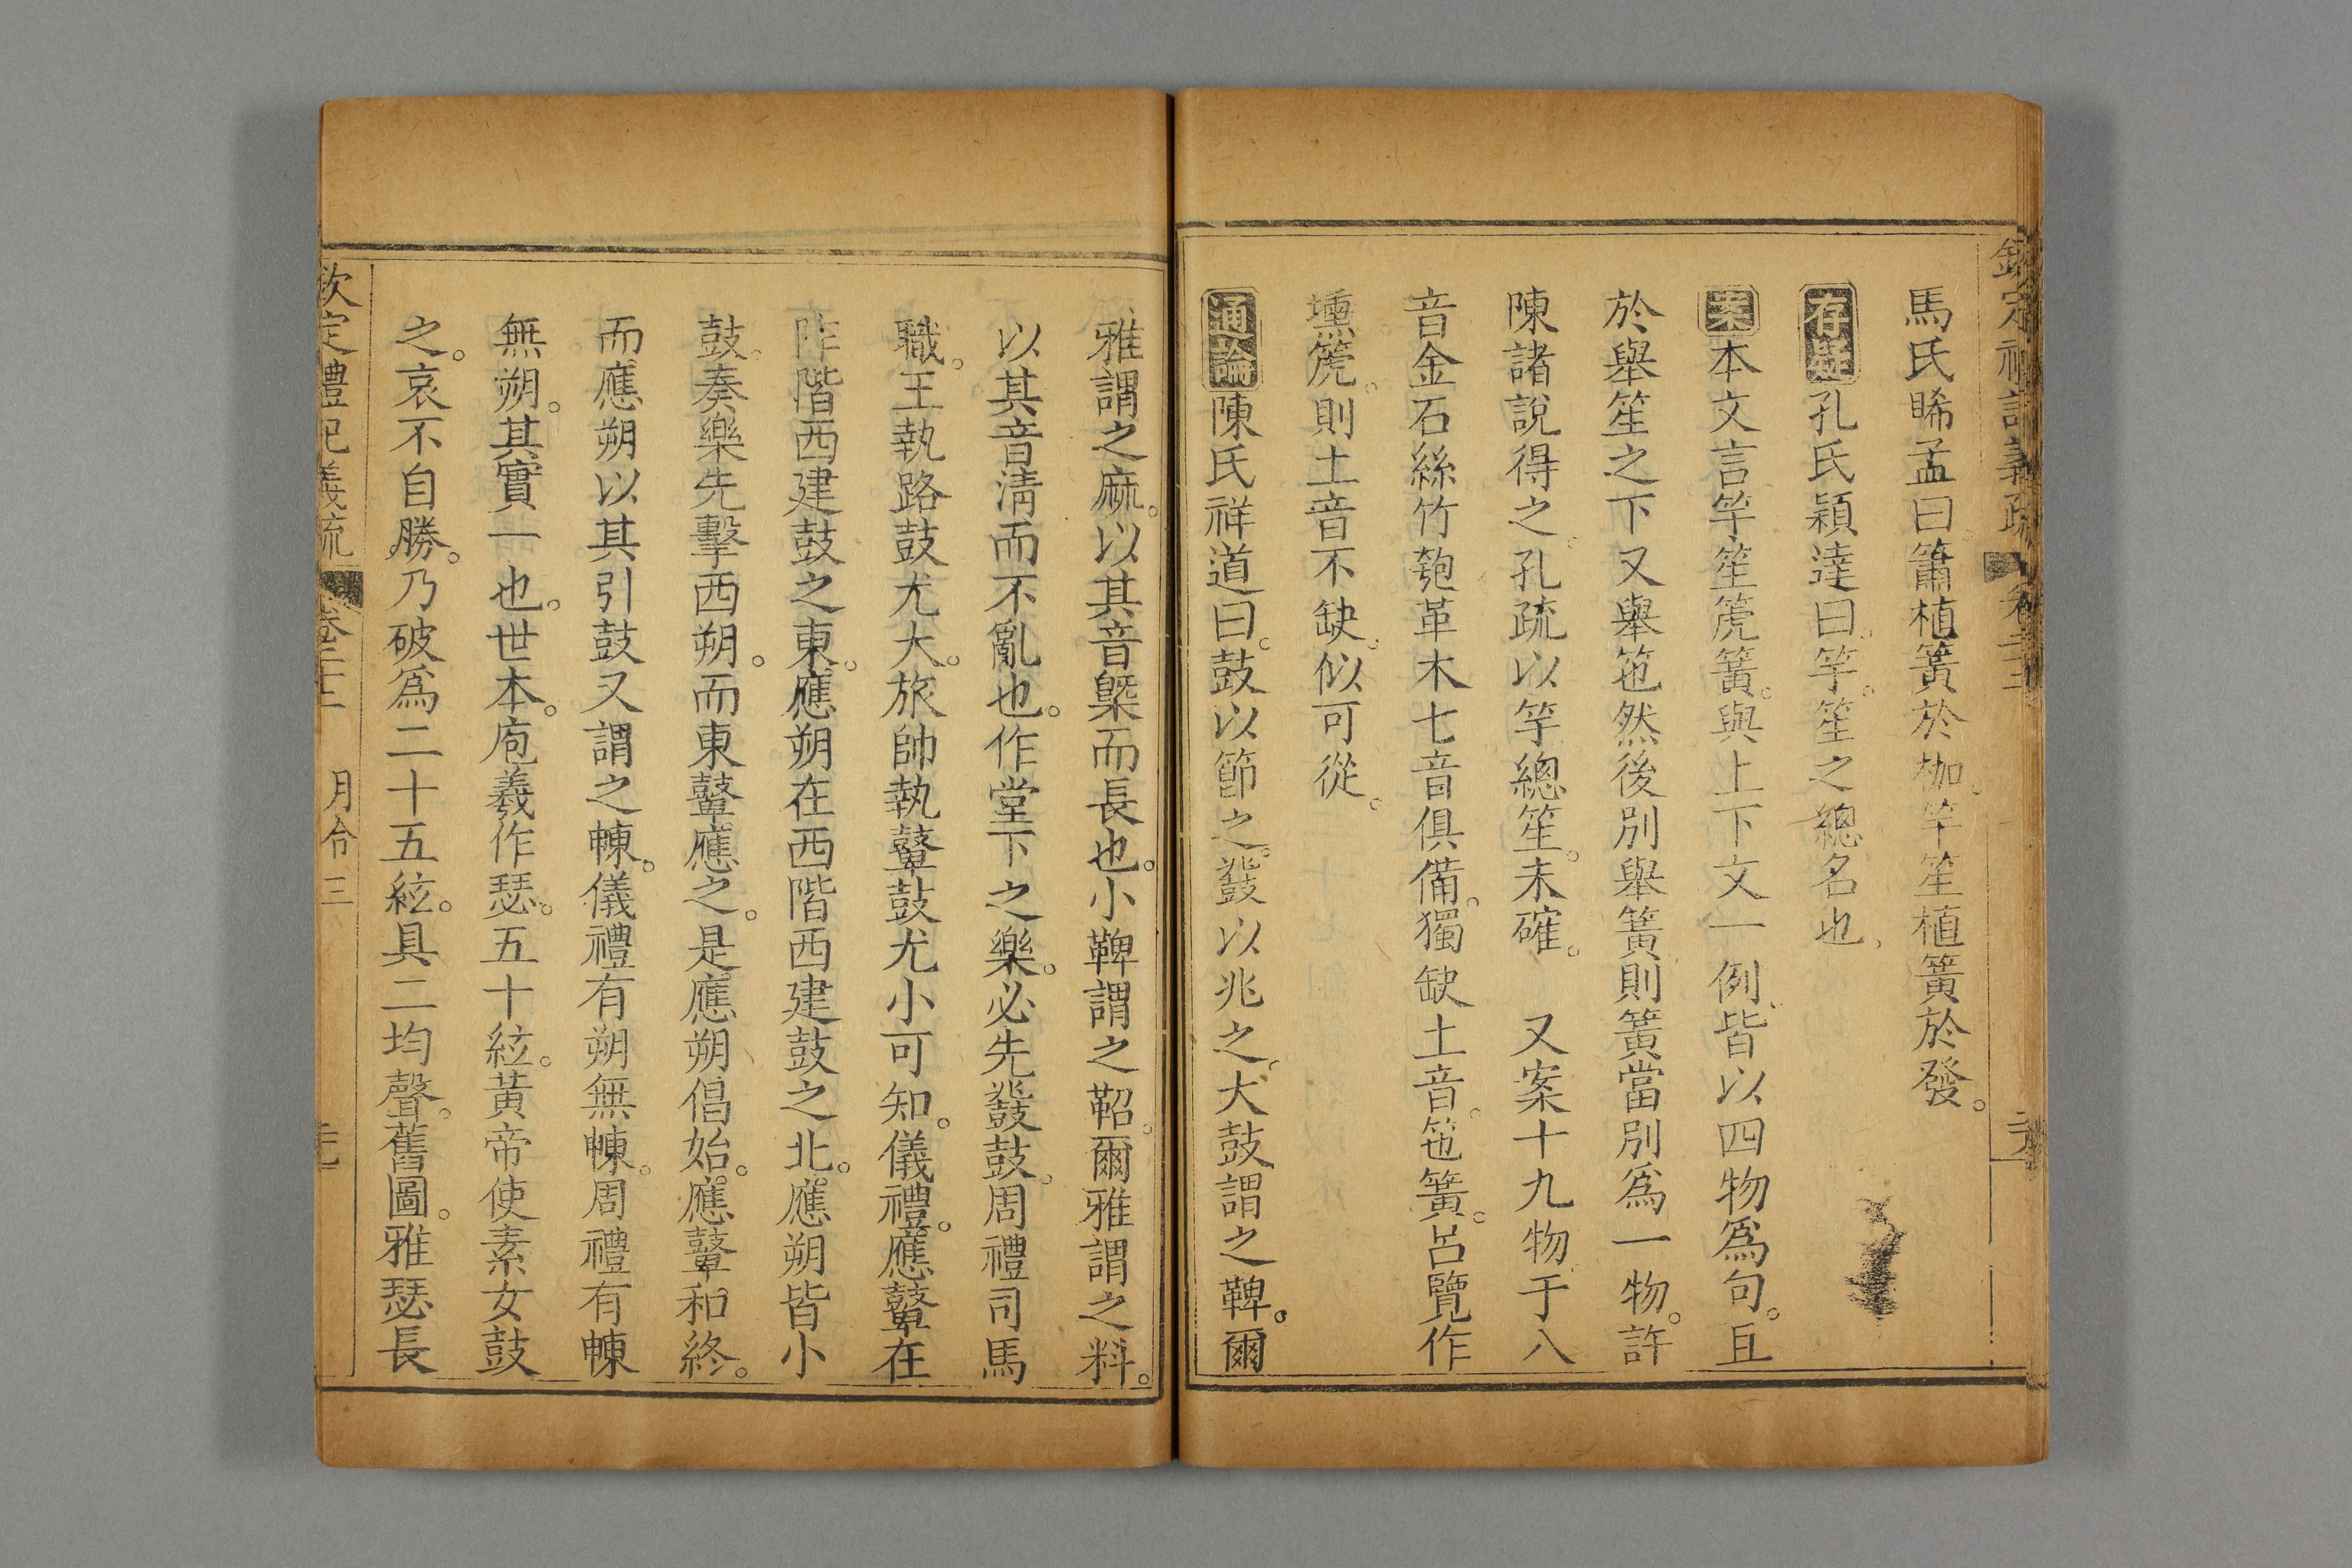 欽定禮記義疏 卷二十三
馬氏晞孟曰簫植簧於枷竽笙植簧於發。
存疑孔氏穎達曰。竽。笙之總名也。
案本文言竽笙箎簧。與上下文一例。皆以四物爲句。且
於舉笙之下又舉笆然後別舉簧則簧當別爲一物。許
陳諸說得之。孔疏以竽總笙。未確。 又案十九物于八
音金石絲竹匏革木七音俱備。獨缺土音。笆簧。呂覽作
壎箎。則土音不缺。似可從。
通論陳氏祥道曰。鼓以節之。鼗以兆之。大鼓謂之鞞。爾
雅謂之麻。以其音槩而長也。小鞞謂之鞀。爾雅謂之料。
以其音淸而不亂也。作堂下之樂。必先鼗鼓。周禮司馬
職。王執路鼓尤大。旅帥執鼙鼓尤小可知。儀禮。應鼙在
阼階西建鼓之東。應朔在西階西建鼓之北。應朔皆小
鼓。奏樂先擊西朔。而東鼙應之。是應朔倡始。應鼙和終。
而應朔以其引鼓又謂之㯥。儀禮有朔無㯥。周禮有㯥
無朔。其實一也。世本。庖羲作瑟。五十絃。黃帝使素女鼓
之。哀不自勝。乃破爲二十五絃。具二均聲。舊圖。雅瑟長
欽定禮記義疏 卷二十三 月令三